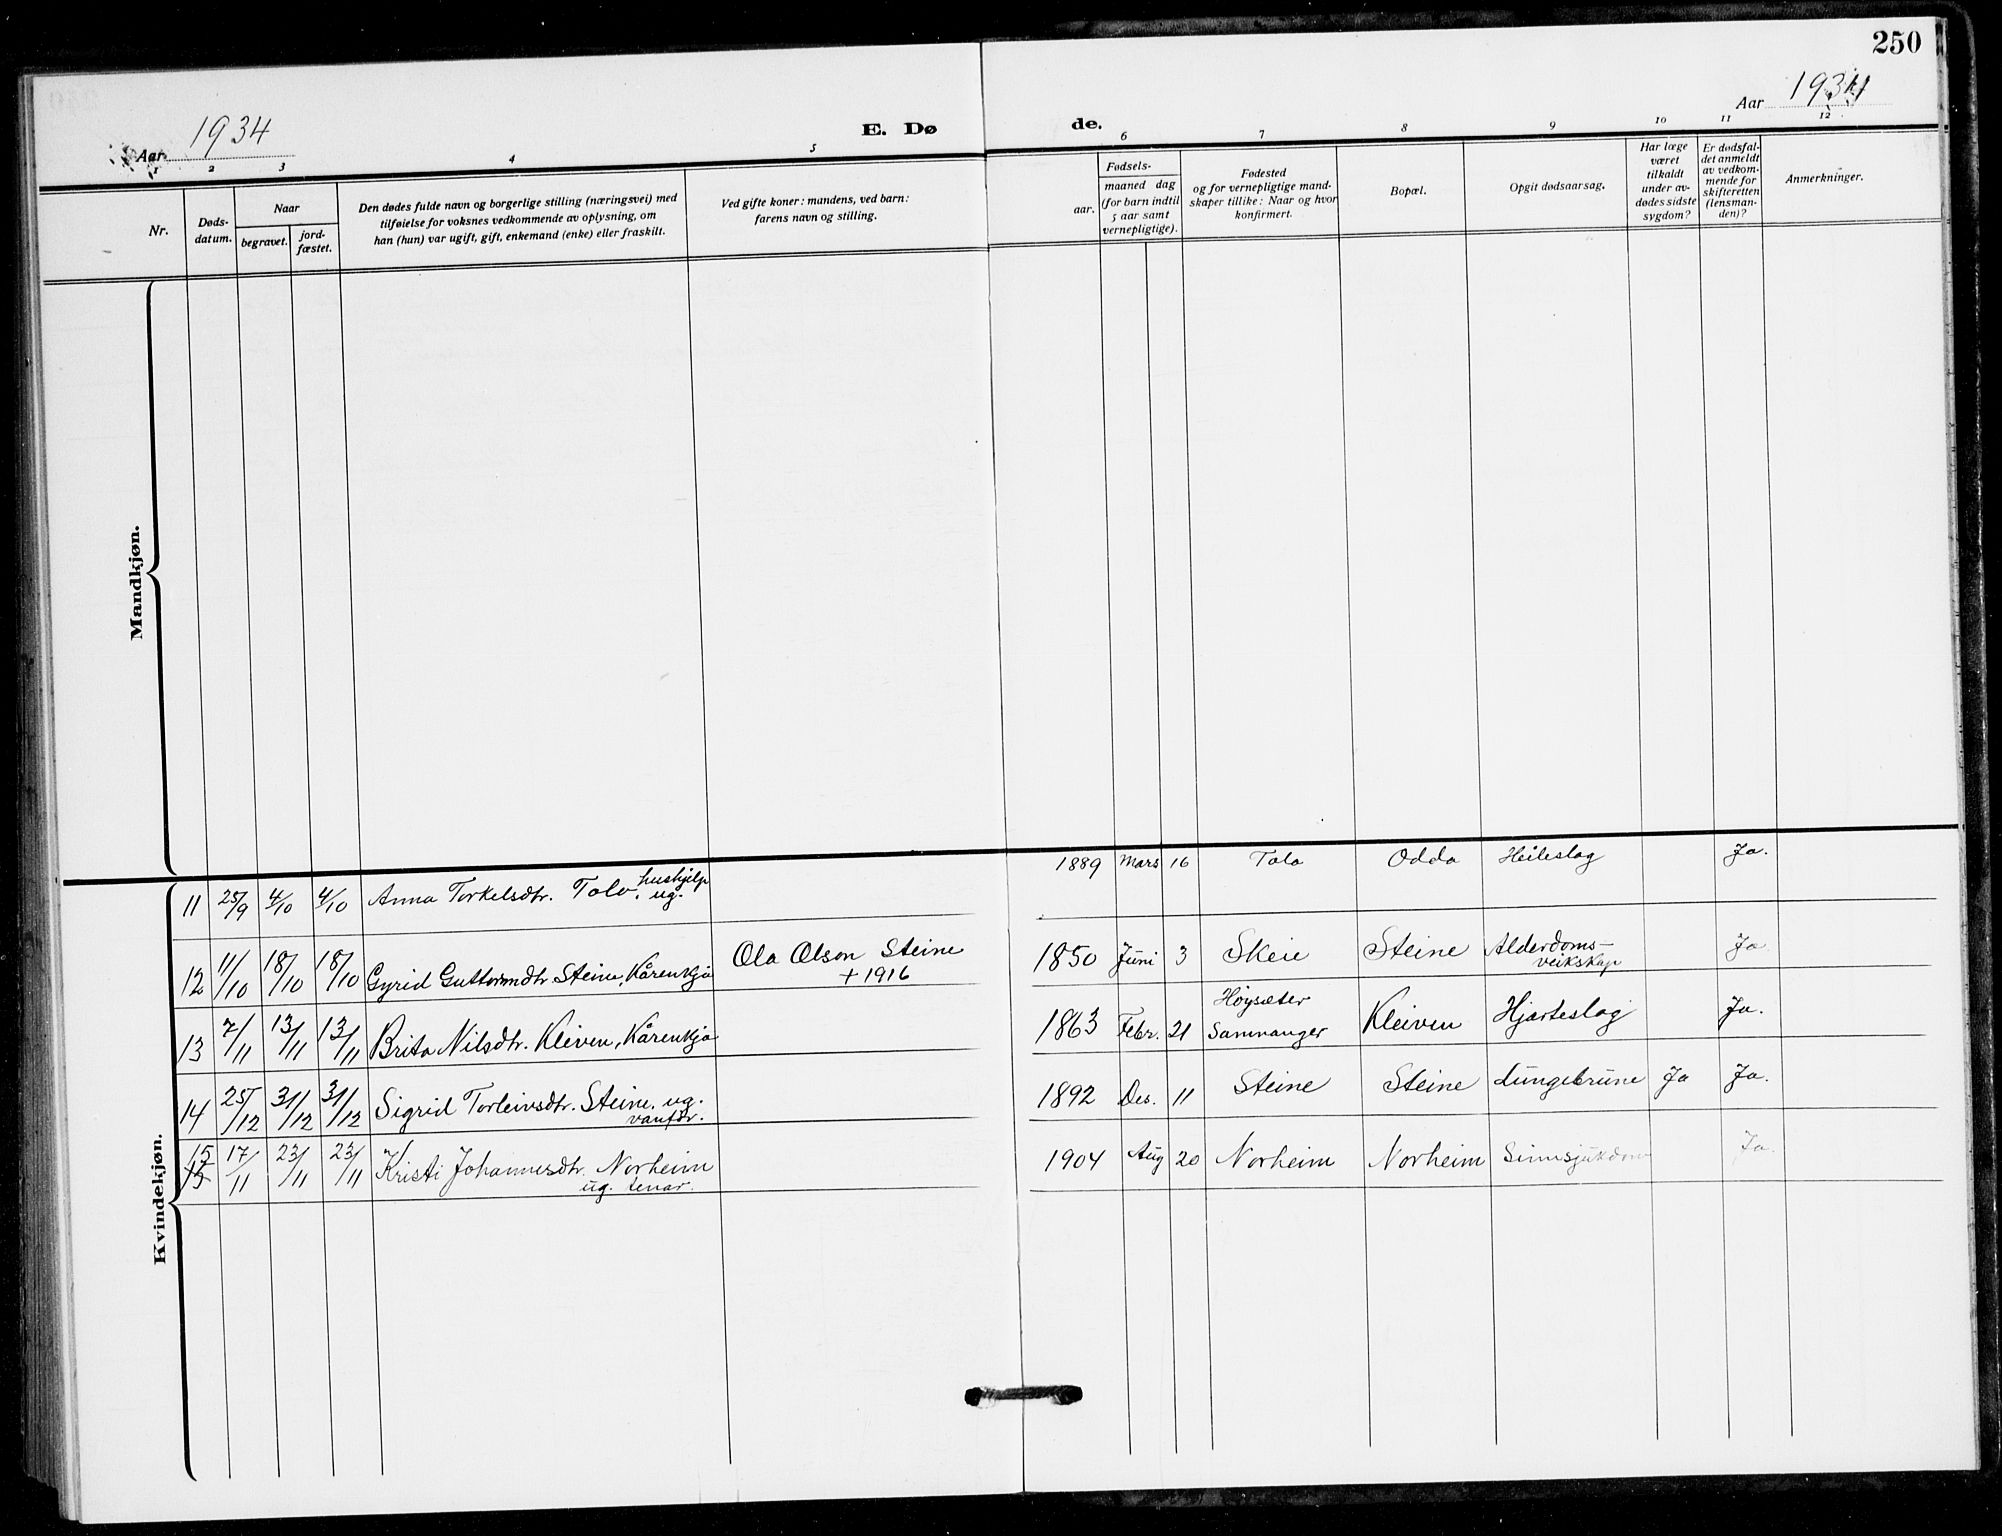 250
Aar 1934
E. Døde.
Aar 1934
1 2 3 4 5 6 7 8 9 10 11 12
Nr.
Døds-
datum.
Naar
begravet.
jord-
fæstet.
Den dødes fulde navn og borgerlige stilling (næringsvei) med
tilføielse for voksnes vedkommende av oplysning, om
han (hun) var ugift, gift, enkemand (enke) eller fraskilt.
Ved gifte koner: mandens, ved barn:
farens navn og stilling.
Fødsels-
aar.
maaned dag
(for barn indtil
5 aar samt
vernepligtige).
Fødested
og for vernepligtige mand-
skaper tillike: Naar og hvor
konfirmert.
Bopæl.
Opgit dødsaarsag.
Har læge
været
tilkaldt
under av-
dødes sidste
sygdom?
Er dødsfal-
det anmeldt
av vedkom-
mende for
skifteretten
(lensman-
den)?
Anmerkninger.
Mandkjøn.
Kvindekjøn.
11 25/9 4/10 4/10 Anna Torkelsdtr. Tolo, hushjelp ug. 1889 Mars 16 Tolo Odda Heileslag Ja.
12 11/10 18/10 18/10 Gyrid Guttormdtr Steine, Kårenkja Ola Olson Steine + 1916 1850 Juni 3 Skeie Steine Alderdoms-veikskap Ja
13 7/11 13/11 13/11 Brita Nilsdtr. Kleiven, Kårenkja 1863 Febr. 21 Høysæter Samnanger Kleiven Hjarteslag Ja.
14 25/12 31/12 31/12 Sigrid Torleivsdtr. Steine, ug. vanfør. 1892 Des. 11 Steine Steine Lungebrune Ja Ja.
15 17/11 23/11 23/11 Kristi Johannesdtr. Norheim ug. tenar. 1904 Aug 20 Norheim Norheim Sinnsjukdom Ja.